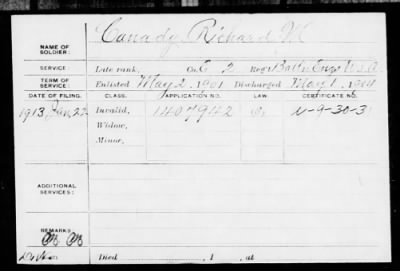 Canady, Richard M
NAME OF SOLDIER:
SERVICE: Late rank, Co. E 2 Reg't Batt'n Engr U.S.A.
TERM OF SERVICE: Enlisted May 2, 1901 Discharged May 1, 1904
DATE OF FILING. CLASS. APPLICATION NO. LAW. CERTIFICATE NO.
1913, Jan. 22 Invalid, 1407942 9-30-3
Widow,
Minor,
ADDITIONAL SERVICES:
REMARKS:
Died , 1 , at